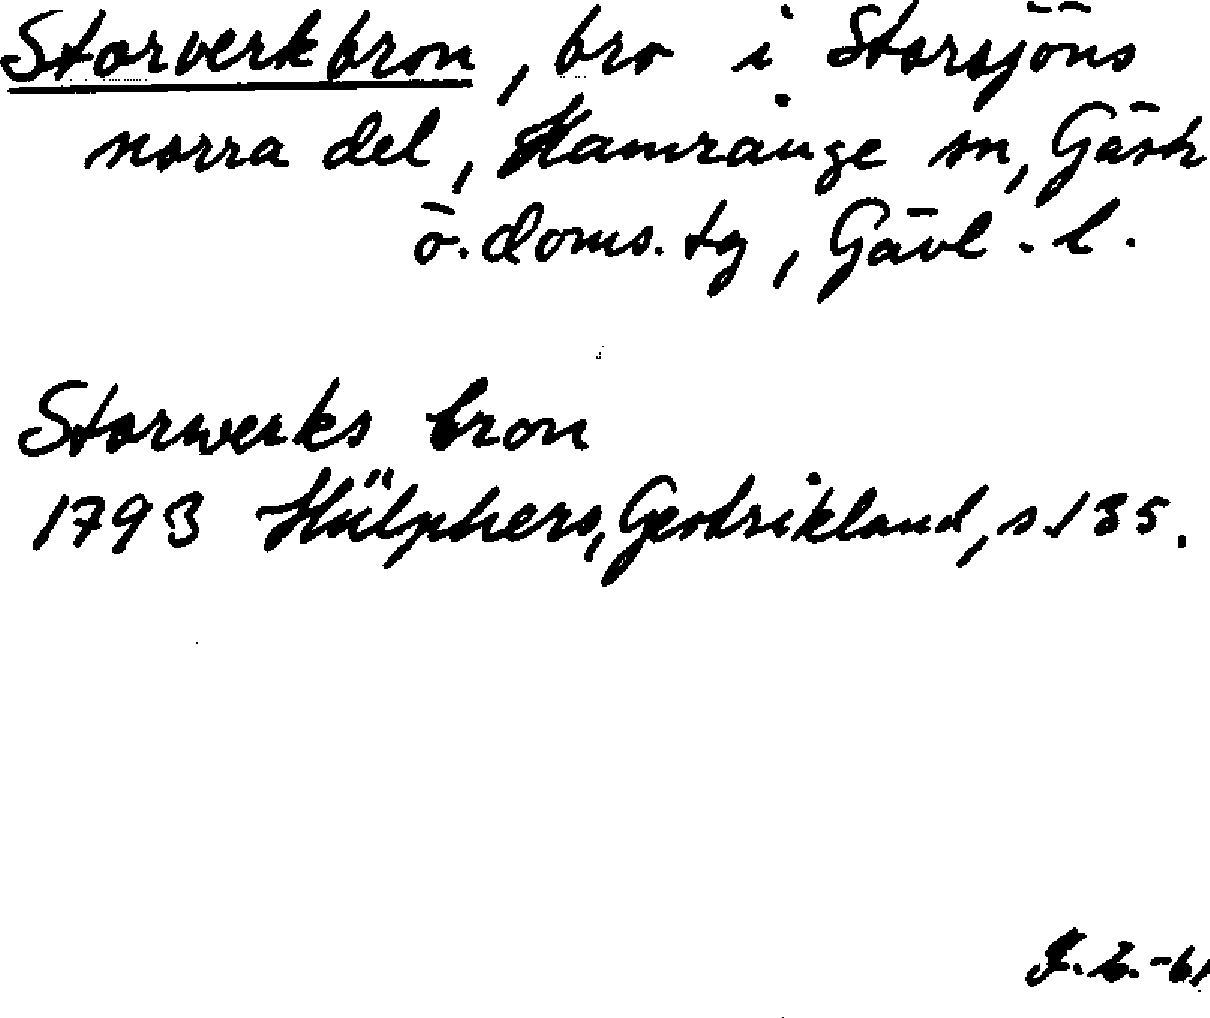 Storverkbron, bro i Storsjöns
norra del, Hamrånge sn, Gästr
ö. doms. tg, Gävl. l.
Storwerks bron
1793 Hülphers, Gestrikland, s. 135.
-61